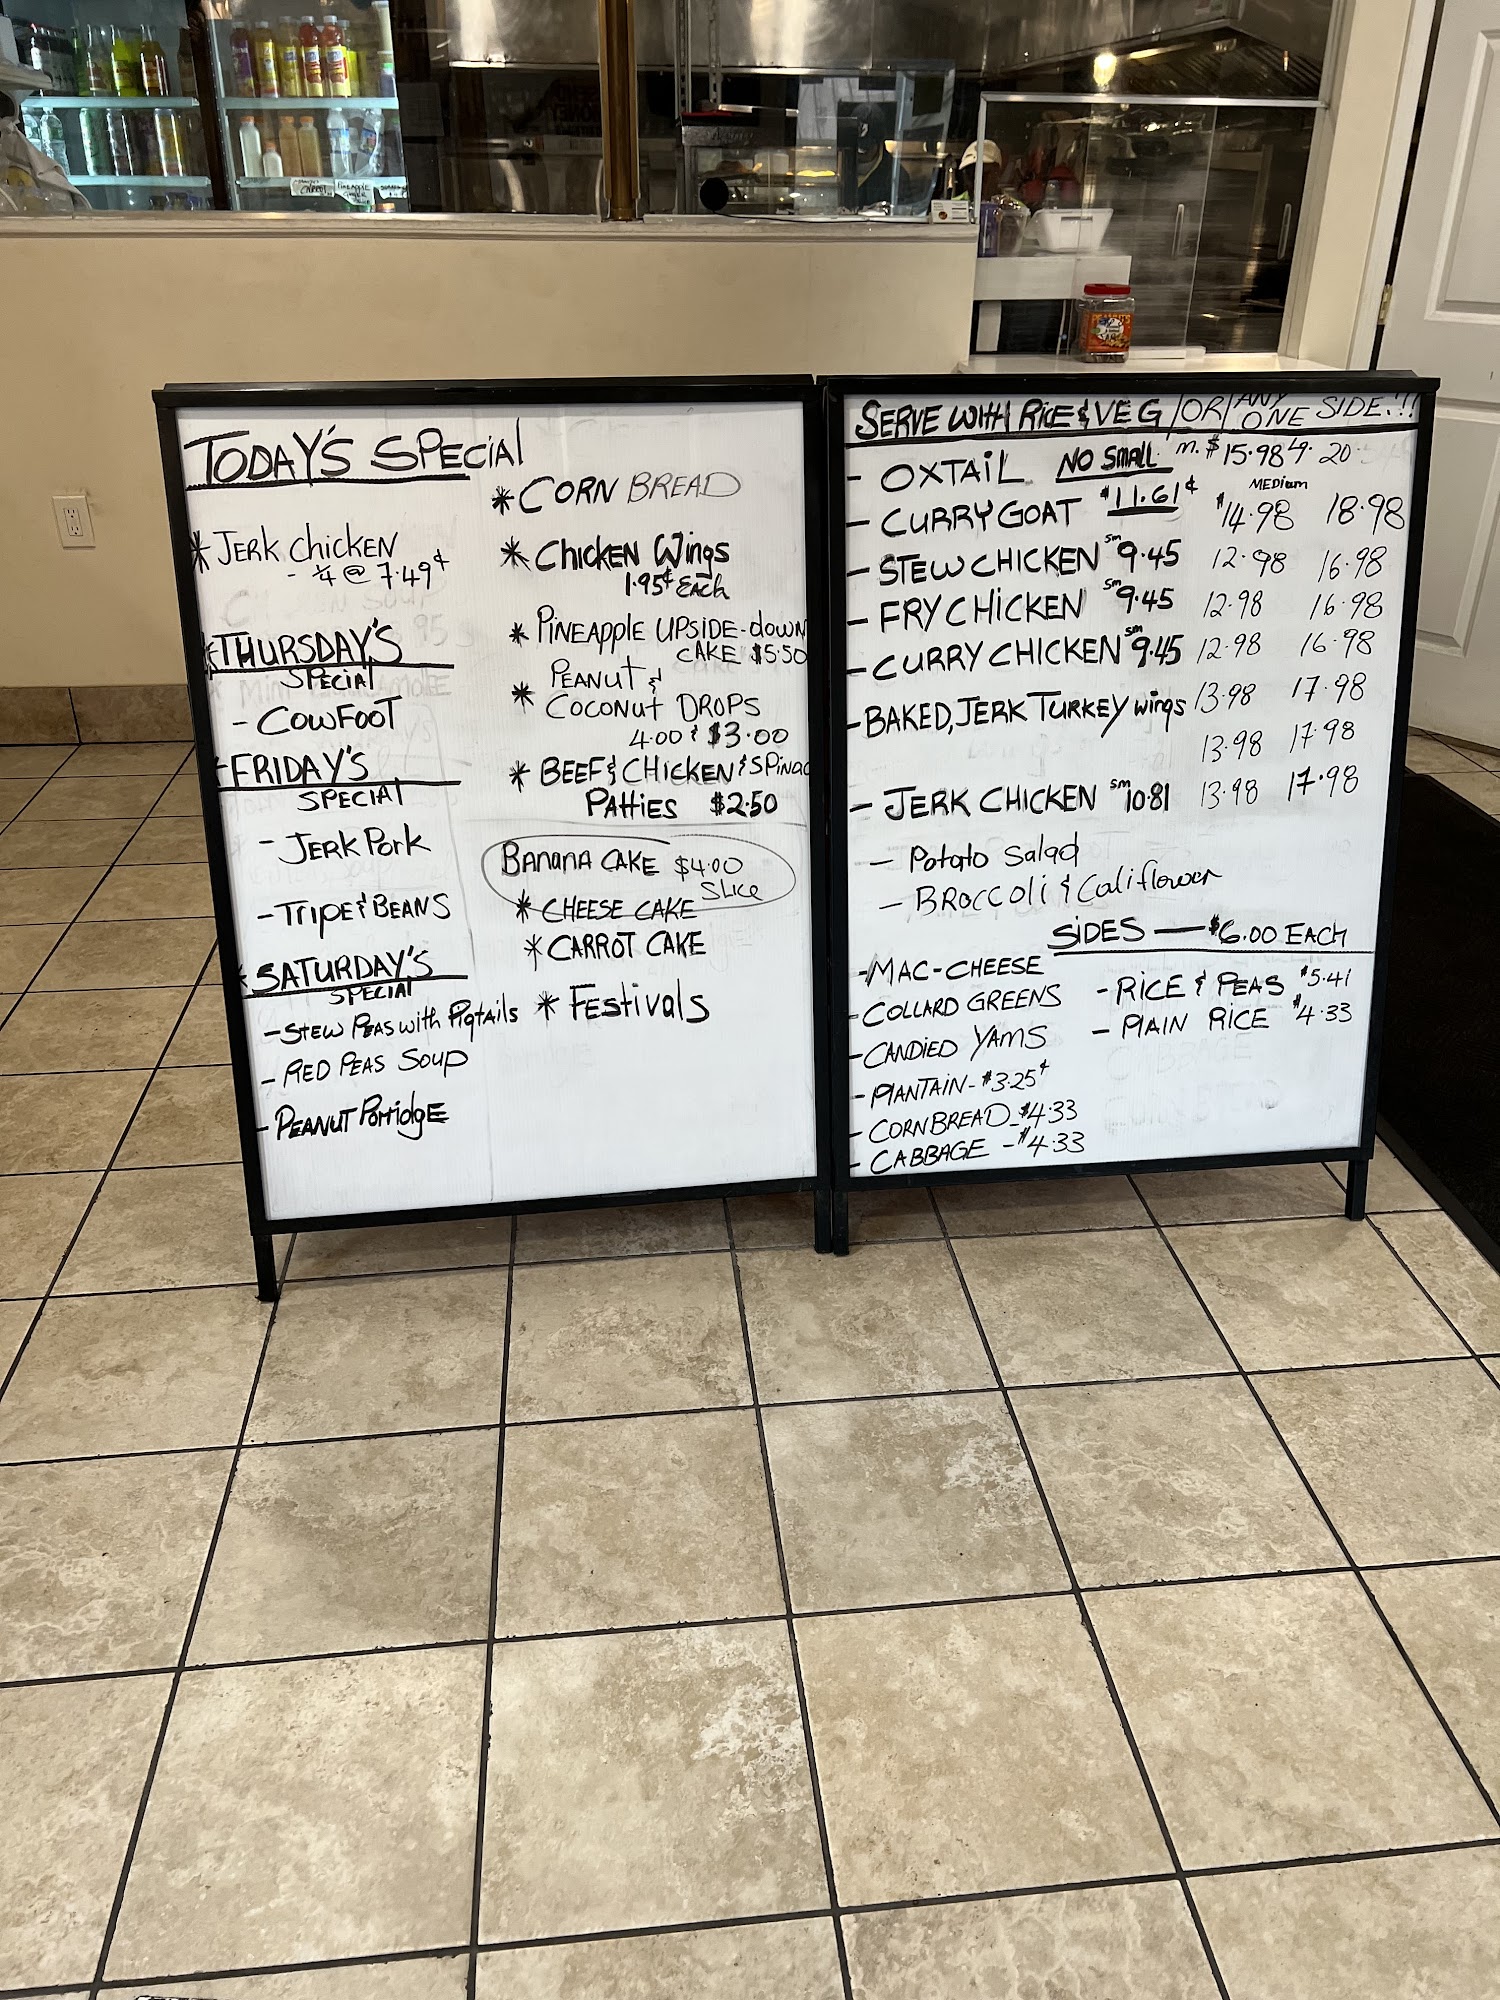 TODAY'S SPECIAL
* JERK CHICKEN
- 1/4 @ 7.49¢
* THURSDAY'S
SPECIAL
- COWFOOT
FRIDAY'S
SPECIAL
- JERK PORK
- TRIPE & BEANS
* SATURDAY'S
SPECIAL
- STEW PEAS with PIGTAILS
- RED PEAS SOUP
- PEANUT PORRIDGE
* CORN BREAD
* CHICKEN WINGS
1.95¢ EACH
* PINEAPPLE UPSIDE-DOWN
CAKE $5.50
* PEANUT &
COCONUT DROPS
4.00 & $3.00
* BEEF & CHICKEN & SPINAC
PATTIES $2.50
BANANA CAKE $4.00
SLICE
* CHEESE CAKE
* CARROT CAKE
* FESTIVALS
SERVE WITH RICE & VEG /OR/ ANY ONE SIDE.!!
- OXTAIL NO SMALL m. $15.98 20
MEDIUM
- CURRY GOAT $11.61¢ $14.98 18.98
- STEW CHICKEN sm 9.45 12.98 16.98
- FRY CHICKEN sm $9.45 12.98 16.98
- CURRY CHICKEN sm 9.45 12.98 16.98
- BAKED, JERK TURKEY wings 13.98 17.98
13.98 17.98
- JERK CHICKEN sm 10.81 13.98 17.98
- Potato Salad
- BROCCOLI & Califlower
SIDES — $6.00 EACH
- MAC-CHEESE
- COLLARD GREENS
- CANDIED YAMS
- PLANTAIN - $3.25¢
- CORN BREAD - $4.33
- CABBAGE - $4.33
- RICE & PEAS $5.41
- PLAIN RICE $4.33